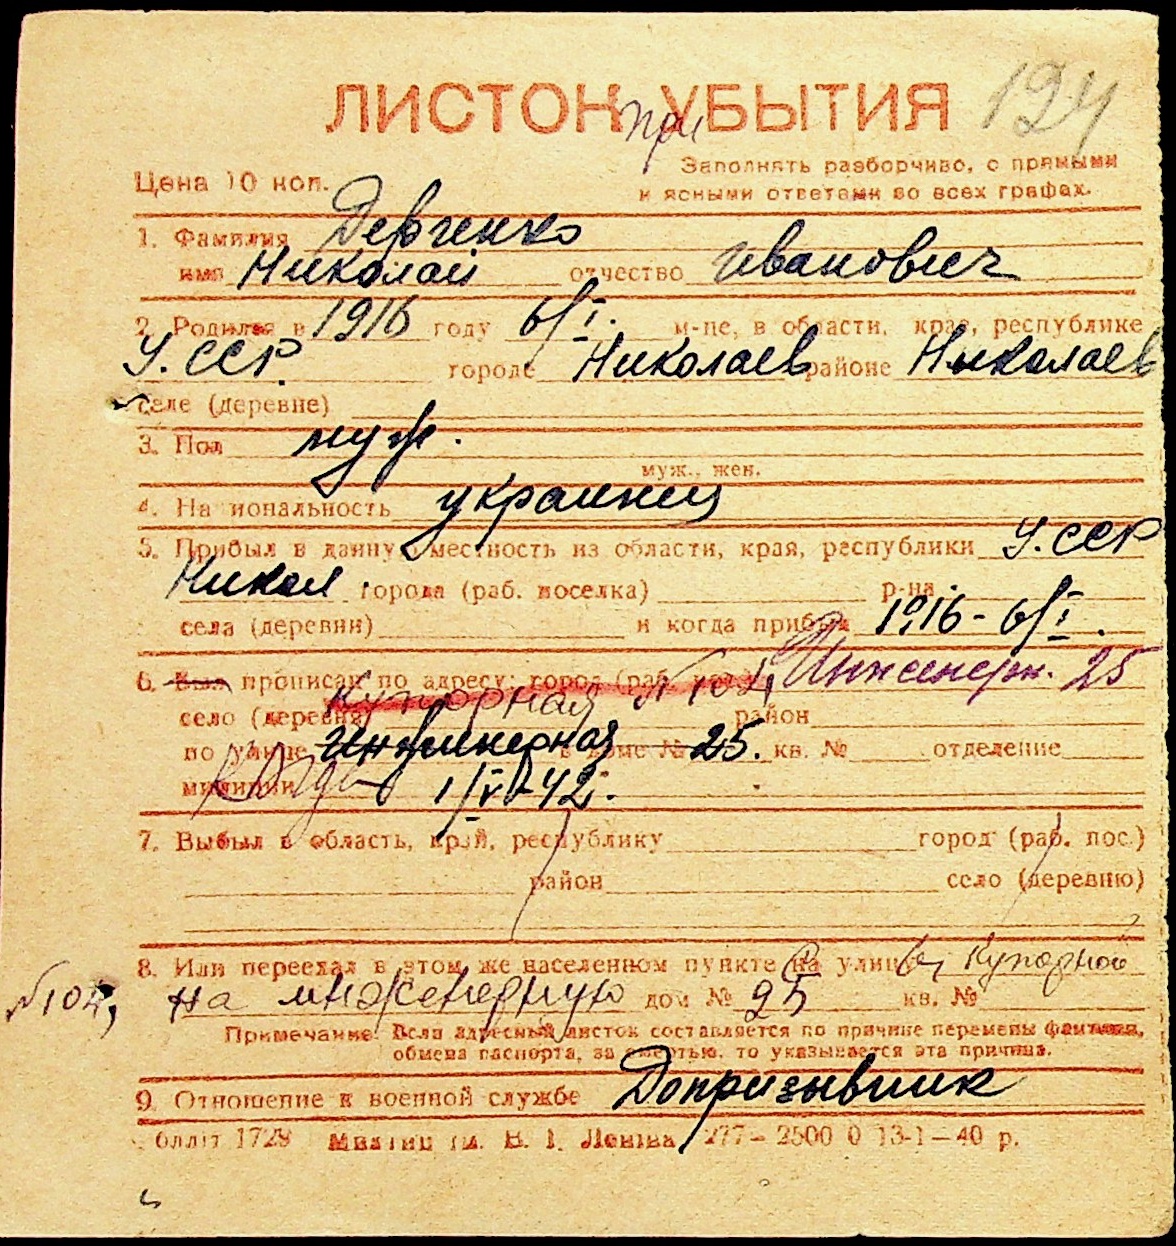 ЛИСТОК УБЫТИЯ 124
при
Цена 10 коп.
Заполнять разборчиво, с прямыми
и ясными ответами во всех графах.
1. Фамилия Дерченко
имя Николай отчество Иванович
2. Родился в 1916 году 6/I. м-це, в области, края, республике
У.ССР. городе Николаев районе Николаев
селе (деревне)
3. Пол муж.
муж., жен.
4. Национальность украинец
5. Прибыл в данную местность из области, края, республики У.ССР
Никол города (раб. поселка) р-на
села (деревни) и когда прибыл 1916 - 6/I.
6. Был прописан по адресу: город (раб. пос.) Инженерн. 25
Купорная №104
село (деревня) район
по улице Инжинерная в доме № 25. кв. № отделение
милиции 1/IV-42.
7. Выбыл в область, край, республику город (раб. пос.)
район село (деревню)
8. Или переехал в этом же населенном пункте на улицу Купорной
№104, на инженерную дом № 25 кв. №
Примечание: Если адресный листок составляется по причине перемены фамилии,
обмена паспорта, за смертью, то указывается эта причина.
9. Отношение к военной службе Допризывник
обліт 1728 Миколаїв ім. В. І. Леніна 277—2500 0 13-1—40 р.